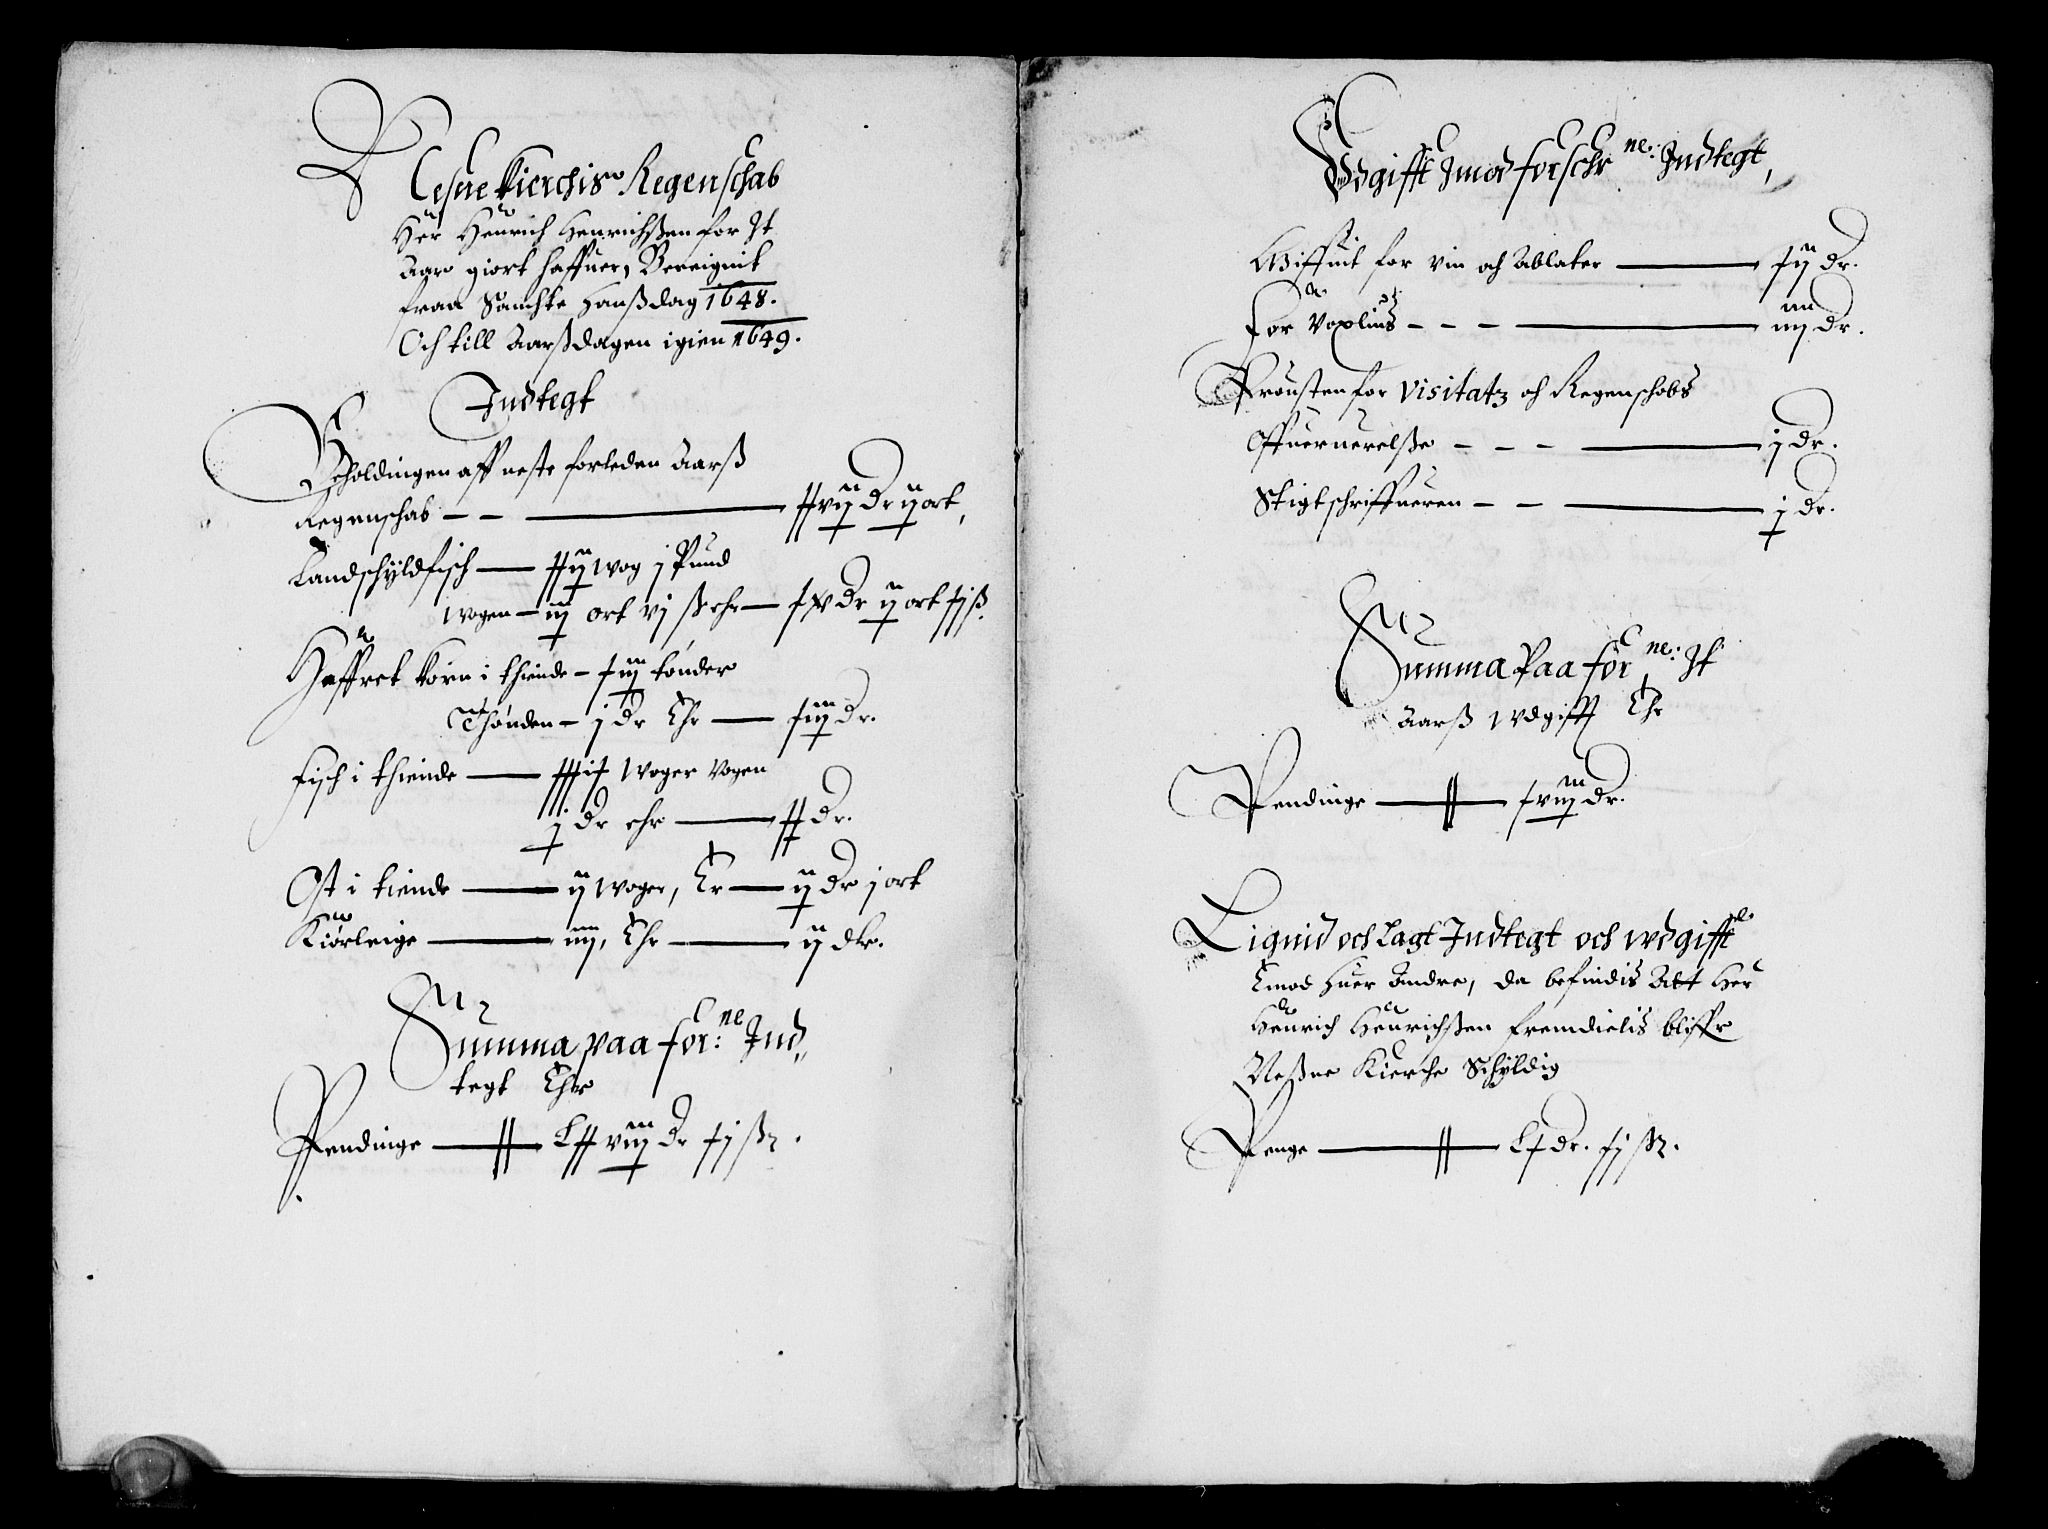 Nesne Kierchis Regenschab
Her Henrich Henrichßen for It
Aar giort haffuer, Bereignit
fraa Sanchte Hanßdag 1648.
Och till Aarßdagen igien 1649.
Indtegt
Beholdingen aff neste forleden Aarß
Regenschab - - — xxvij Dr ij ort,
Landschyldfisch — xxij wog j Pund
wogen — iij ort vj ß ehr — xv Dr ij ort xj ß.
Haffret Korn i thiende — xiij tønder
Thønden — j dr Ehr — xiij Dr.
Fisch i thiende — Woger Vogen
j dr ehr — xx dr.
Ost i tiende — ij woger, Er — ij dr j ort
Kiørleige — iiij, Ehr — ij dlr.
Summa paa for:ne Ind,,
tegt Ehr
Pendinge — Lxxviij Dr xj ß.
Wdgifft Imod forschr ne: Indtegt,
Wdgiffuit for vin och Ablater — xij Dr.
For Voxlius - - - — iiij Dr.
Prousten for Visitatz och Regenschabs
Offueruerelße - - - — j Dr.
Stigtschriffueren - - — j Dr.
Summa Paa for ne: It
Aarß Wdgifft Ehr
Pendinge — xviij Dr.
Liquid och Lagt Indtegt och Wdgifft
Emod Huer Andre, da befindis Att Her
Henrich Henrichßen fremdielis bliffr
Neßne Kierche Schyldig
Penge — Lx dr. xj ß.